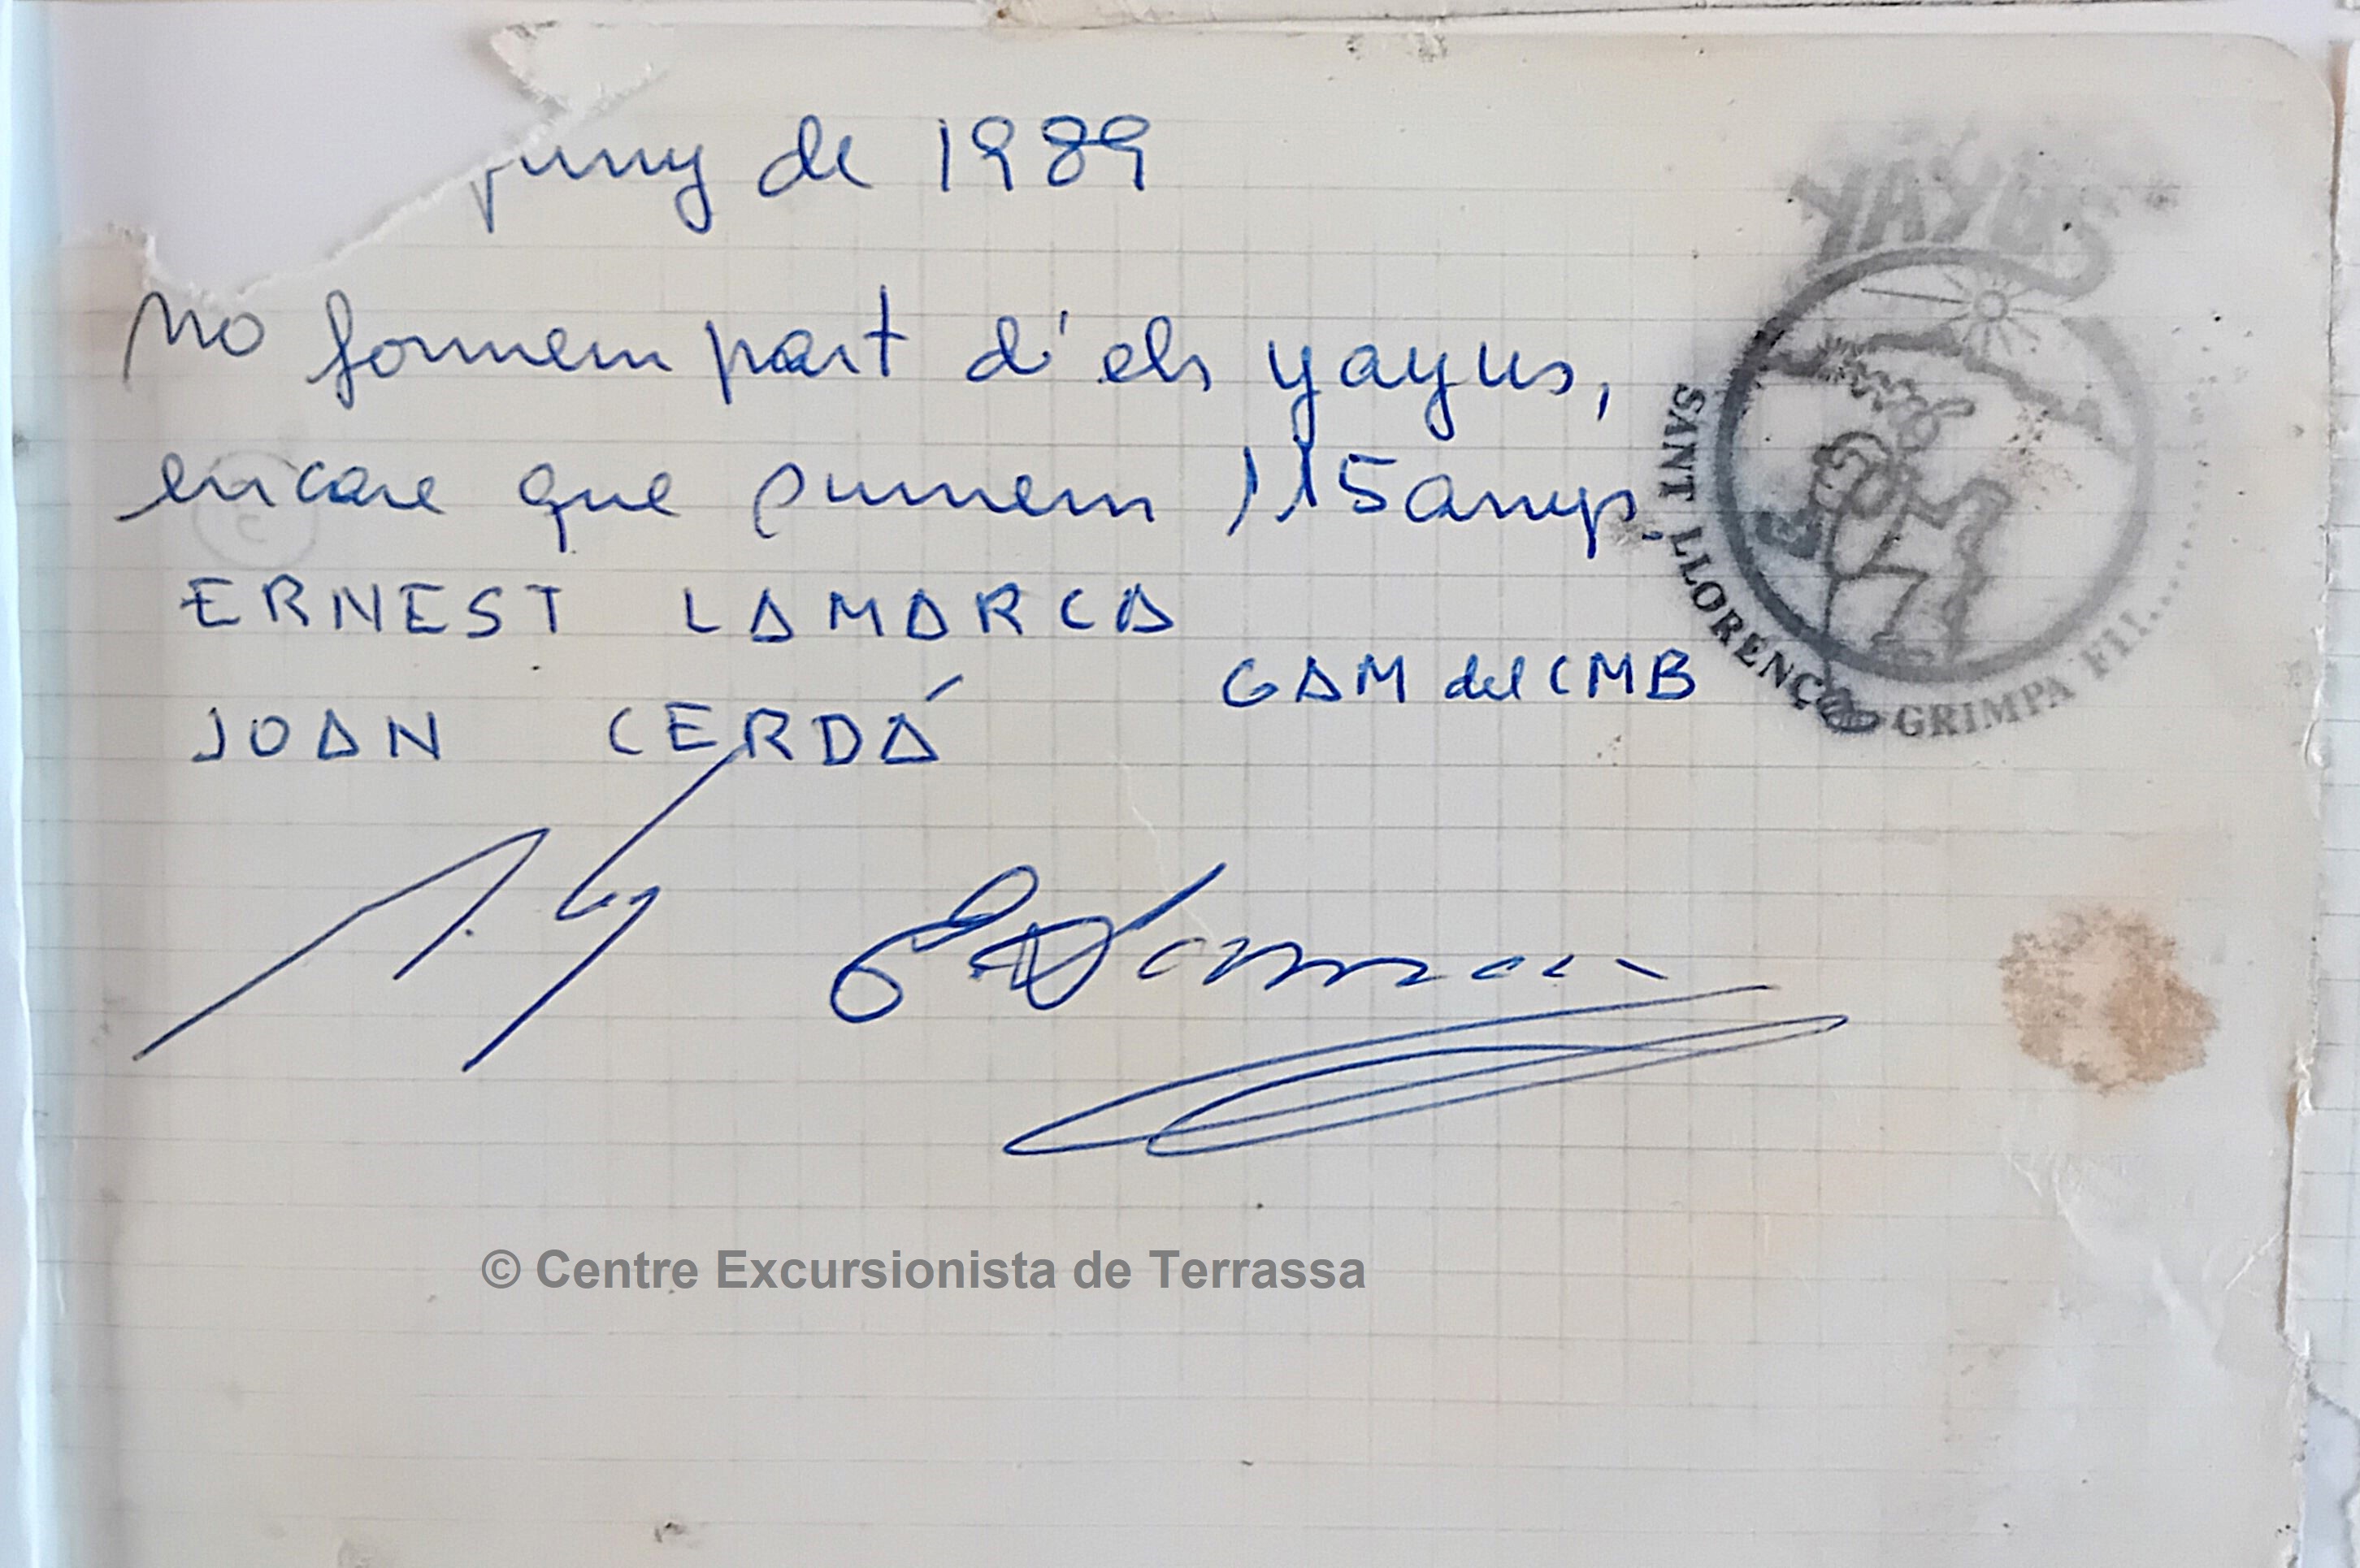 juny de 1989
No formem part d'els yayus,
encare que sumem 115 anys.
ERNEST LAMARCA
GAM del CMB
JOAN CERDÁ
YAYUS
SANT LLORENÇ
GRIMPA FI!.....
© Centre Excursionista de Terrassa